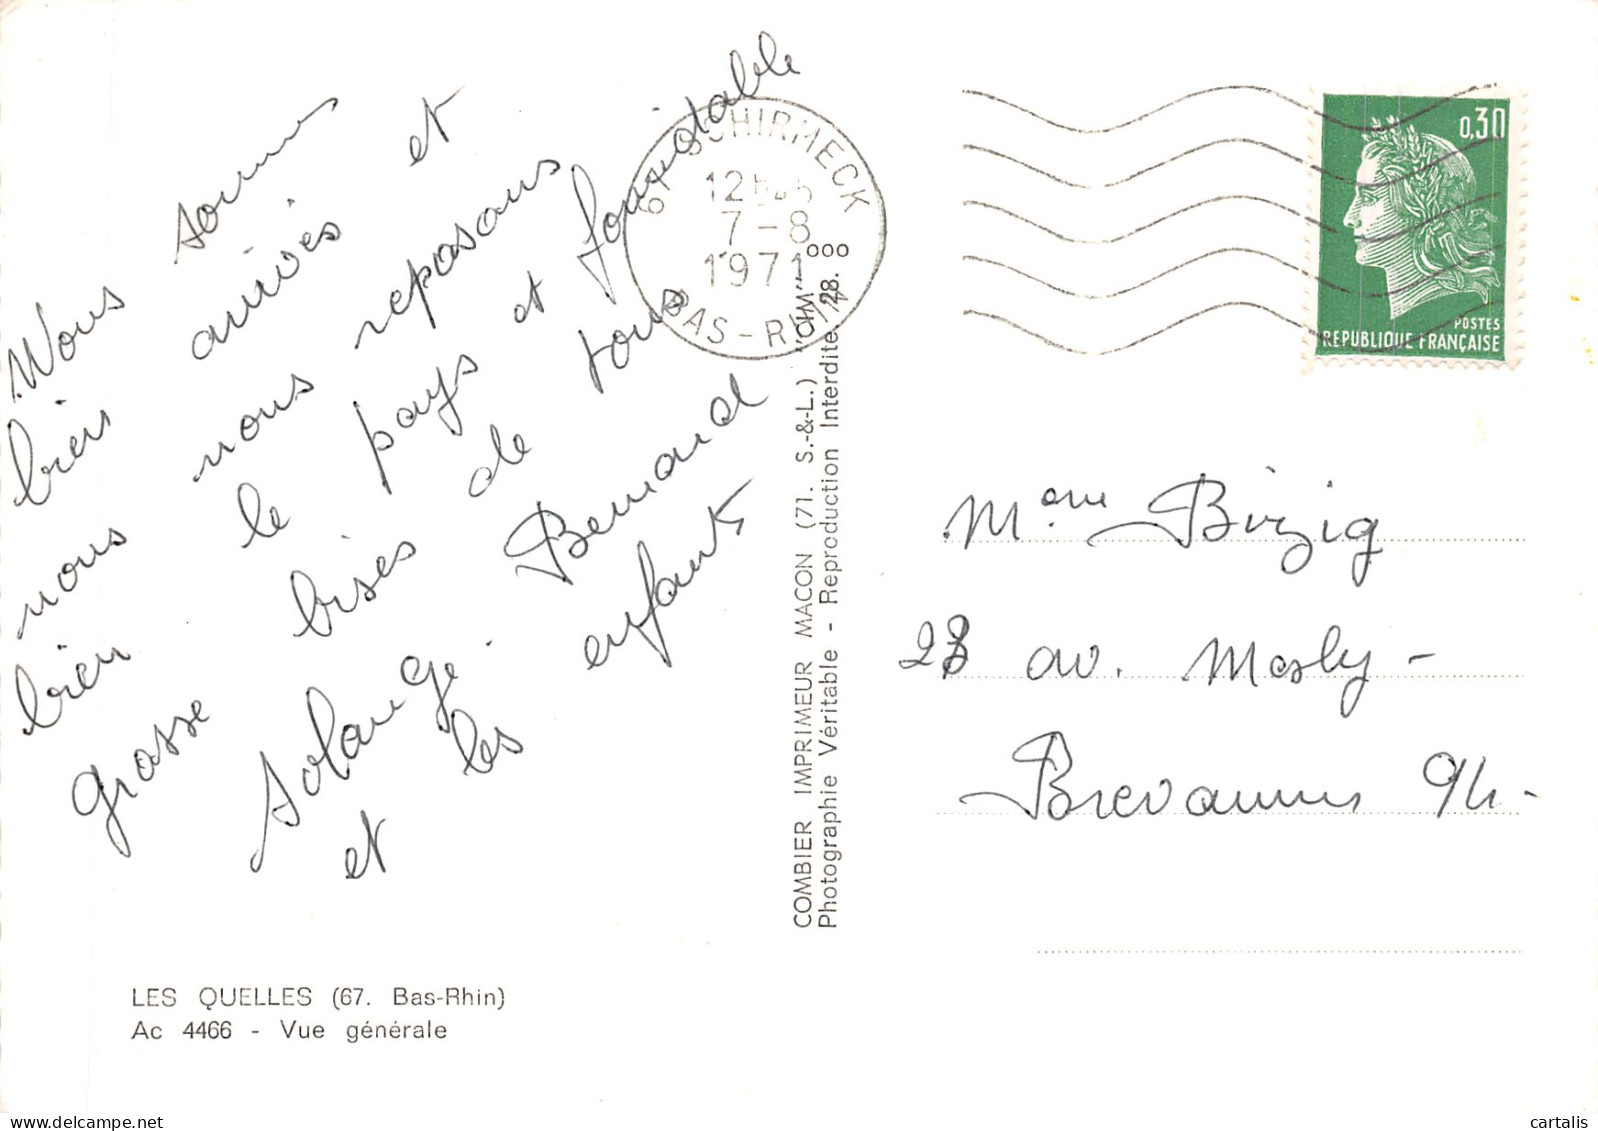 Nous sommes
bien arrivés et
nous nous reposans
bien le pays et formidable
grosse bises de tous
Solange Bernard
et les enfants
67 SCHIRMECK
12H
7-8
1971
BAS-RHIN
0,30
POSTES
REPUBLIQUE FRANÇAISE
COMBIER IMPRIMEUR MACON (71. S.-&-L.) "CIM"
Photographie Véritable - Reproduction Interdite
28.
Mme Bizzig
23 av. Mesly -
Brevannes 94 -
LES QUELLES (67. Bas-Rhin)
Ac 4466 - Vue générale
cartalis